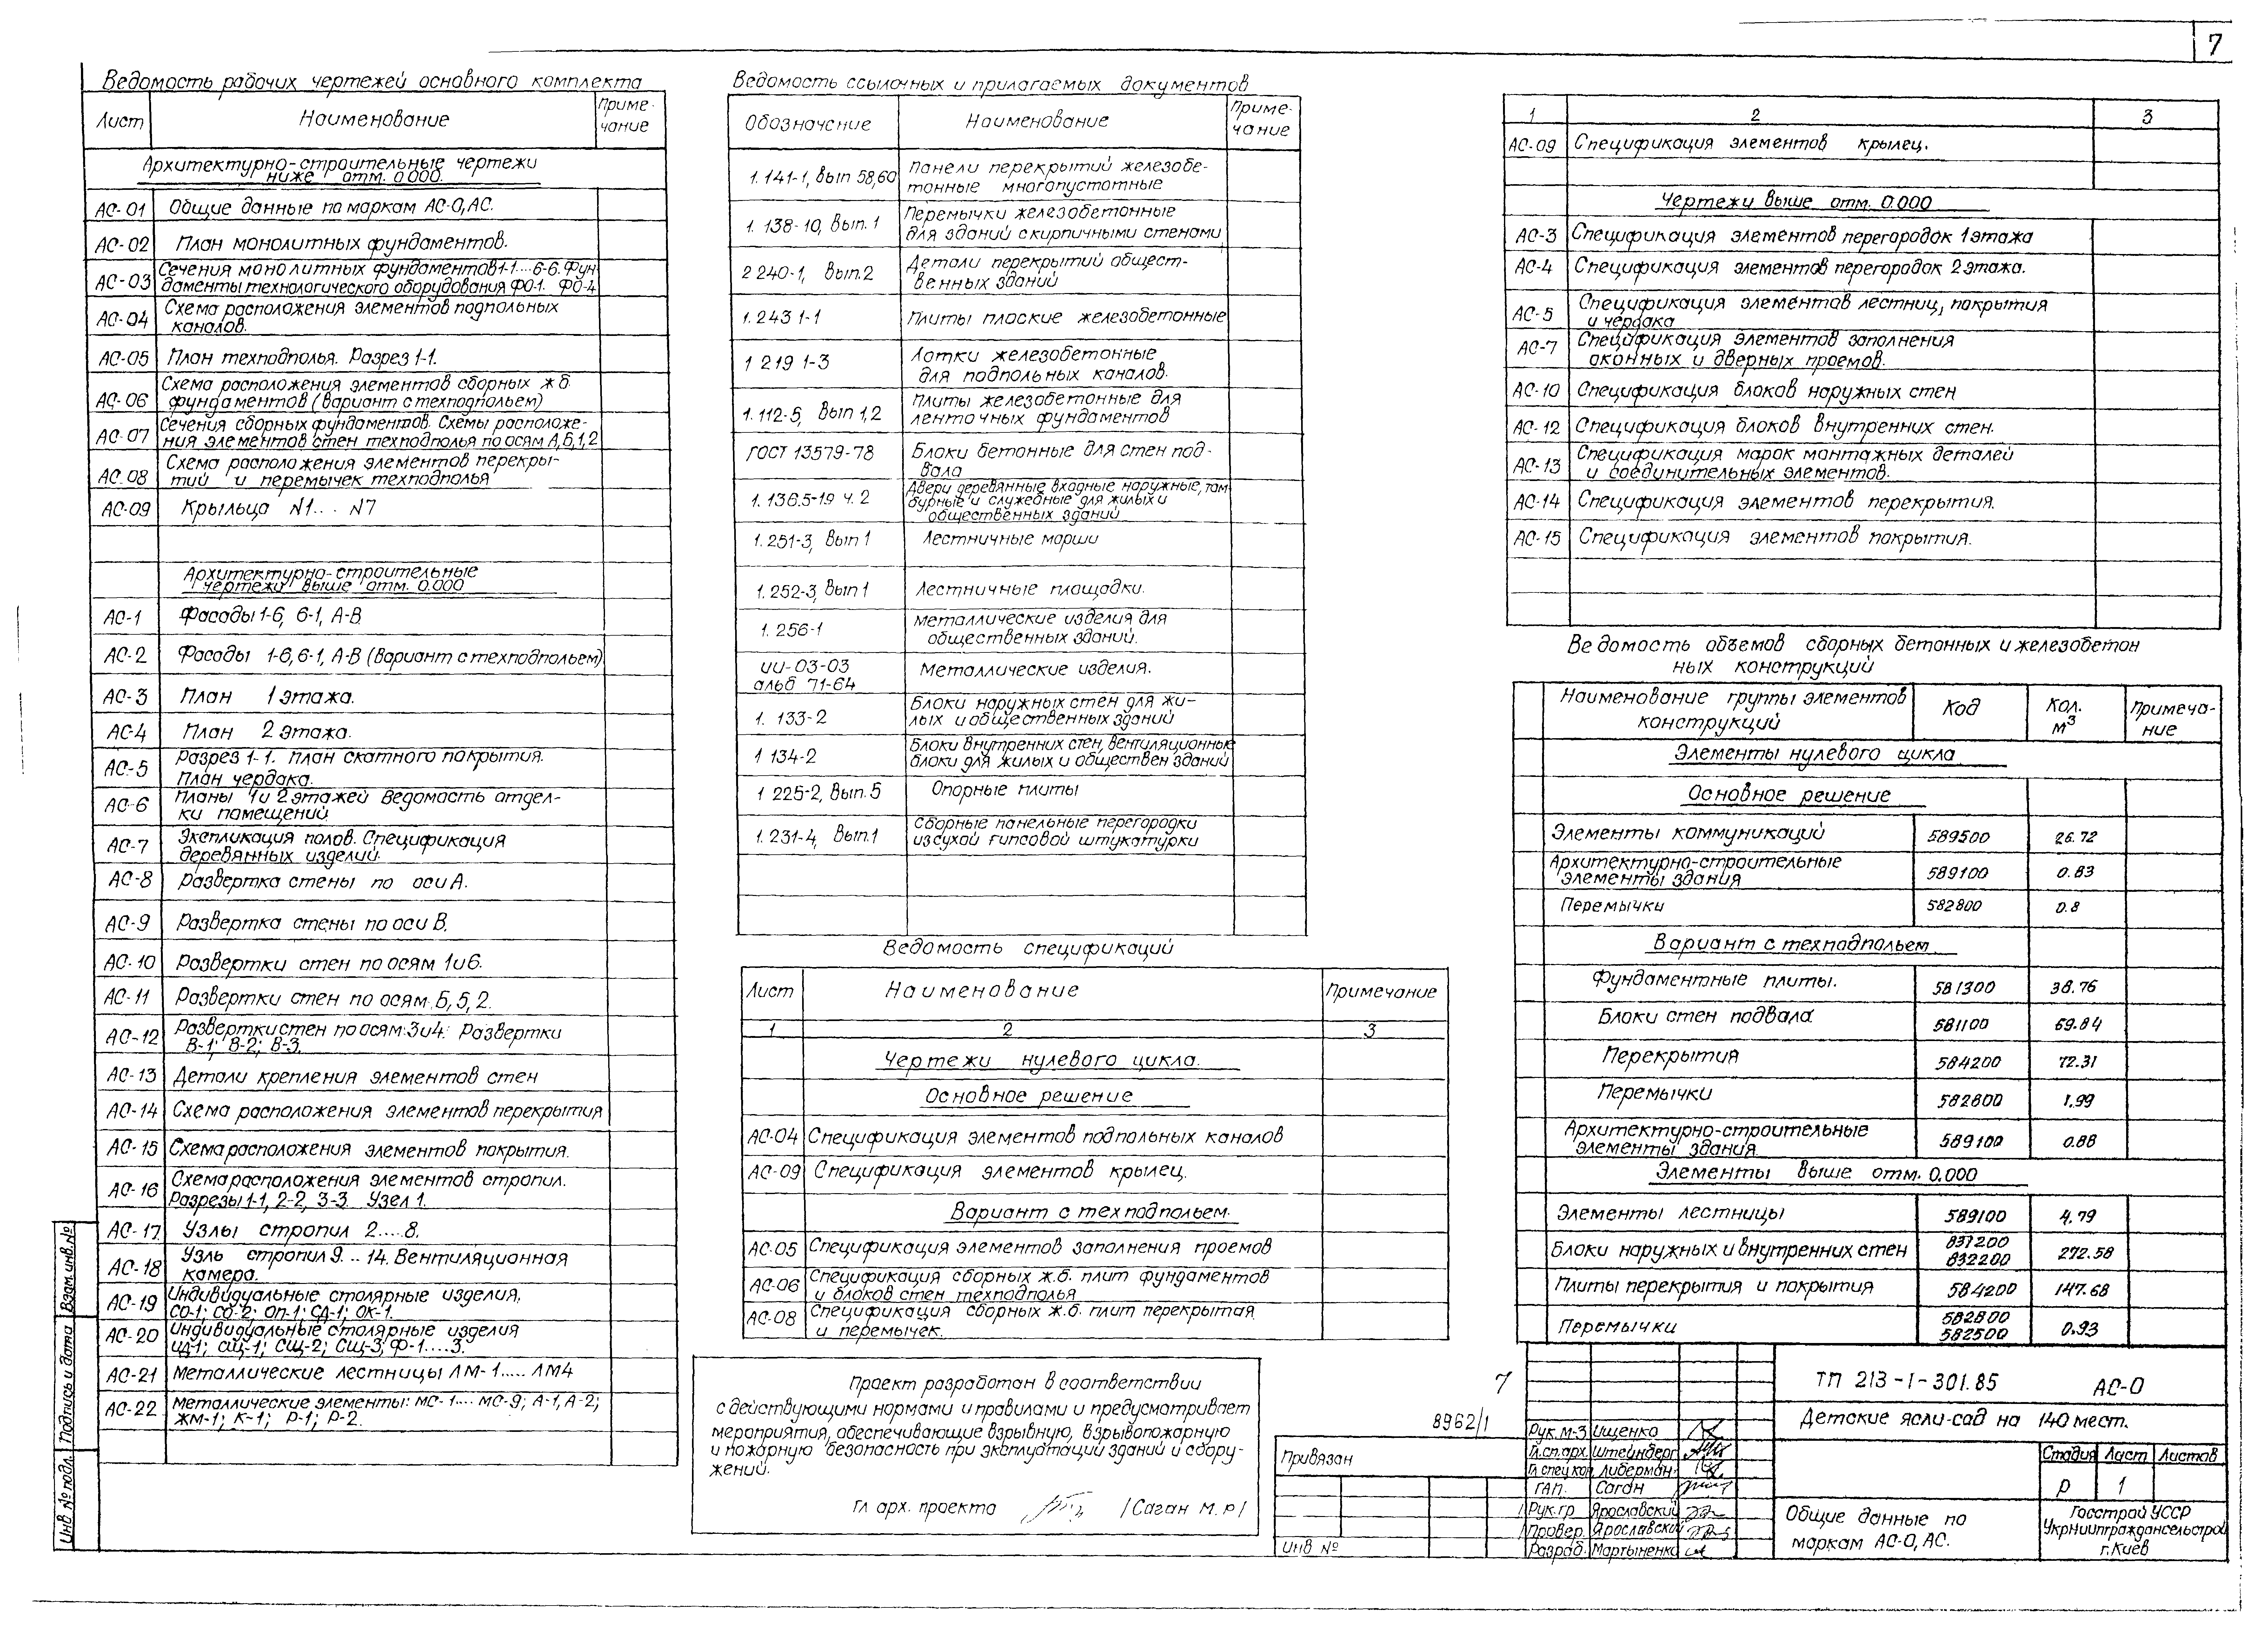 7
Ведомость рабочих чертежей основного комплекта
Лист Наименование Приме-
чание
Архитектурно-строительные чертежи
ниже отм. 0.000.
АС-01 Общие данные по маркам АС-0, АС.
АС-02 План монолитных фундаментов.
АС-03 Сечения монолитных фундаментов 1-1....6-6. Фун-
даменты технологического оборудования ФО-1. ФО-4
АС-04 Схема расположения элементов подпольных
каналов.
АС-05 План техподполья. Разрез 1-1.
АС-06 Схема расположения элементов сборных ж б.
фундаментов (вариант с техподпольем)
АС-07 Сечения сборных фундаментов. Схемы расположе-
ния элементов стен техподполья по осям А,Б,1,2
АС 08 Схема расположения элементов перекры-
тий и перемычек техподполья
АС-09 Крыльца N1.. . N7
Архитектурно-строительные
чертежи выше отм. 0.000
АС-1 Фасады 1-6, 6-1, А-В.
АС-2 Фасады 1-6, 6-1, А-В (вариант с техподпольем)
АС-3 План 1 этажа.
АС-4 План 2 этажа.
АС-5 Разрез 1-1. План скатного покрытия.
План чердака.
АС-6 Планы 1 и 2 этажей Ведомость отдел-
ки помещений
АС-7 Экспликация полов. Спецификация
деревянных изделий.
АС-8 Развертка стены по оси А.
АС-9 Развертка стены по оси В.
АС-10 Развертки стен по осям 1 и 6.
АС-11 Развертки стен по осям: Б, 5, 2.
АС-12 Развертки стен по осям: 3 и 4. Развертки
В-1; В-2; В-3.
АС-13 Детали крепления элементов стен
АС-14 Схема расположения элементов перекрытия
АС-15 Схема расположения элементов покрытия.
АС-16 Схема расположения элементов стропил.
Разрезы 1-1, 2-2, 3-3 Узел 1.
АС-17 Узлы стропил 2....8.
АС-18 Узлы стропил 9. .. 14. Вентиляционная
камера.
АС-19 Индивидуальные столярные изделия,
СО-1; СО-2; ОП-1; СД-1; ОК-1.
АС-20 Индивидуальные столярные изделия
ИД-1; СЩ-1; СЩ-2; СЩ-3; Ф-1....3.
АС-21 Металлические лестницы ЛМ-1..... ЛМ4
АС-22 Металлические элементы: МС-1.... МС-9; А-1, А-2;
ЖМ-1; К-1; Р-1; Р-2.
Взам. инв. №
Подпись и дата
Инв № подл.
Ведомость ссылочных и прилагаемых документов
Обозначение Наименование Приме-
чание
1. 141-1, вып 58,60 Панели перекрытий железобе-
тонные многопустотные
1. 138-10, вып. 1 Перемычки железобетонные
для зданий с кирпичными стенами
2 240-1, вып.2 Детали перекрытий общест-
венных зданий
1. 243 1-1 Плиты плоские железобетонные
1 219 1-3 Лотки железобетонные
для подпольных каналов.
1. 112-5, вып 1,2 Плиты железобетонные для
ленточных фундаментов
ГОСТ 13579-78 Блоки бетонные для стен под-
вала
1. 136.5-19 ч. 2 Двери деревянные входные наружные, там-
бурные и служебные для жилых и
общественных зданий
1. 251-3, вып 1 Лестничные марши
1. 252-3, вып 1 Лестничные площадки.
1. 256-1 Металлические изделия для
общественных зданий.
ИИ-03-03
альб 71-64 Металлические изделия.
1. 133-2 Блоки наружных стен для жи-
лых и общественных зданий
1 134-2 Блоки внутренних стен, вентиляционные
блоки для жилых и обществен зданий
1 225-2, вып. 5 Опорные плиты
1. 231-4, вып.1 Сборные панельные перегородки
из сухой гипсовой штукатурки
Ведомость спецификаций
Лист Наименование Примечание
1 2 3
Чертежи нулевого цикла.
Основное решение
АС-04 Спецификация элементов подпольных каналов
АС-09 Спецификация элементов крылец.
Вариант с техподпольем.
АС-05 Спецификация элементов заполнения проемов
АС-06 Спецификация сборных ж.б. плит фундаментов
и блоков стен техподполья
АС-08 Спецификация сборных ж.б. плит перекрытия
и перемычек.
Проект разработан в соответствии
с действующими нормами и правилами и предусматривает
мероприятия, обеспечивающие взрывную, взрывопожарную
и пожарную безопасность при эксплуатаций зданий и соору-
жений.
Гл арх. проекта /Саган М. Р/
1 2 3
АС-09 Спецификация элементов крылец.
Чертежи выше отм. 0.000
АС-3 Спецификация элементов перегородок 1 этажа
АС-4 Спецификация элементов перегородок 2 этажа.
АС-5 Спецификация элементов лестниц, покрытия
и чердака
АС-7 Спецификация элементов заполнения
оконных и дверных проемов.
АС-10 Спецификация блоков наружных стен
АС-12 Спецификация блоков внутренних стен.
АС-13 Спецификация марок монтажных деталей
и соединительных элементов.
АС-14 Спецификация элементов перекрытия.
АС-15 Спецификация элементов покрытия.
Ведомость объемов сборных бетонных и железобетон
ных конструкций
Наименование группы элементов
конструкций Код Кол.
м³ Примеча-
ние
Элементы нулевого цикла
Основное решение
Элементы коммуникаций 589500 26.72
Архитектурно-строительные
элементы здания 589100 0.83
Перемычки 582800 0.8
Вариант с техподпольем
Фундаментные плиты. 581300 38.76
Блоки стен подвала 581100 69.84
Перекрытия 584200 72.31
Перемычки 582800 1.99
Архитектурно-строительные
элементы здания 589100 0.88
Элементы выше отм. 0.000
Элементы лестницы 589100 4.79
Блоки наружных и внутренних стен 831200
832200 272.58
Плиты перекрытия и покрытия 584200 147.68
Перемычки 582800
582500 0.93
7
8962/1
Привязан
Инв №
Рук. М-3 Ищенко
Гл.сп.арх. Штейнберг
Гл спец кон Либерман
ГАП. Саган
Рук. гр Ярославский
Провер. Ярославский
Разраб. Мартыненко
ТП 213-1-301.85 АС-0
Детские ясли-сад на 140 мест.
Стадия Лист Листов
Р 1
Общие данные по
маркам АС-0, АС.
Госстрой УССР
УкрНИИПграждансельстрой
г. Киев